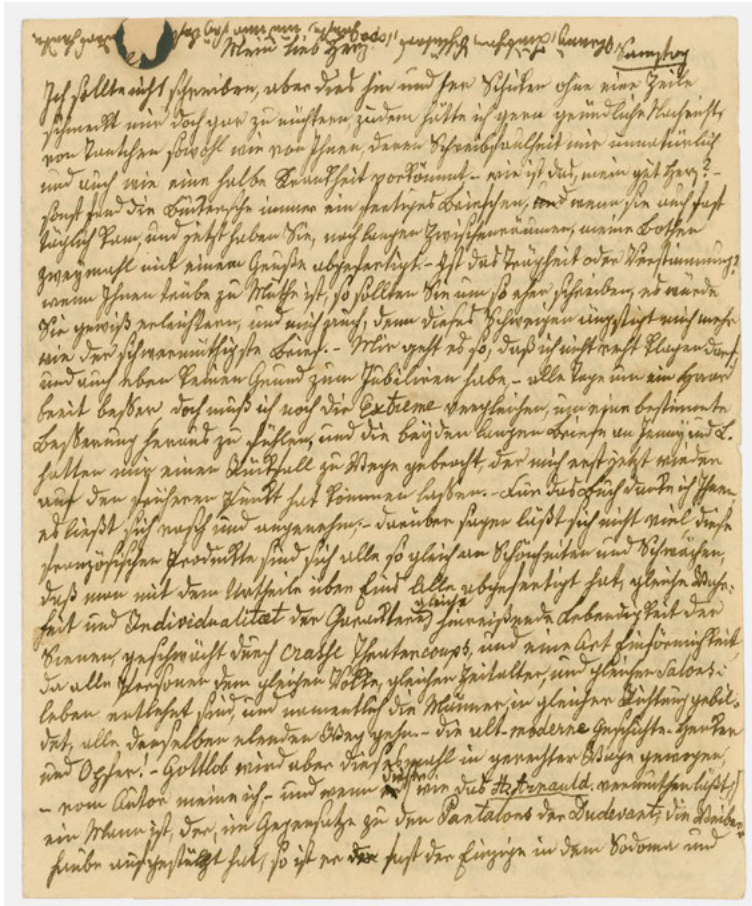 Samstag
Mein lieb Herz
Ich sollte nicht schreiben, aber dies hin und her Schicken ohne eine Zeile
schmeckt mir doch gar zu nüchtern, zudem hätte ich gern gründliche Nachricht,
von Tantchen sowohl wie von Ihnen, deren Schreibfaulheit mir unnatürlich
und auch wie eine halbe Krankheit vorkömmt – wie ist das, mein gut Herz? –
sonst fand die Botensche immer ein fertiges Briefchen, und wenn sie auch fast
täglich kam, und jetzt haben Sie, nach langen Zwischenräumen, meine Bothen
zweymahl mit einem Gruße abgefertigt. – Ist das Trägheit oder Verstimmung?
wenn Ihnen trübe zu Muthe ist, so sollten Sie um so eher schreiben, es würde
Sie gewiß erleichtern, und mich auch, denn dieses Schweigen ängstigt mich mehr
wie der schwermüthigste Brief. – Mir geht es so, daß ich nicht recht klagen darf
und auch eben keinen Grund zum Jubiliren habe – alle Tage um ein Haar
breit besser, doch muß ich noch die Extreme vergleichen, um eine bestimmte
Besserung heraus zu fühlen, und die beyden langen Briefe an Jenny und L.
hatten mir einen Rückfall zu Wege gebracht, der mich erst jetzt wieder
auf den früheren Punkt hat kommen lassen. – Für das Buch danke ich Ihnen,
es ließt sich rasch und angenehm, – darüber sagen läßt sich nicht viel, diese
französischen Produkte sind sich alle so gleich an Schönheiten und Schwächen,
daß man mit dem Urtheile über Eins Alle abgefertigt hat, gleiche Wahr-
heit und Individualität der Charaktere, gleich hinreißende Lebendigkeit der
Scenen, geschwächt durch crasse Theatercoups, und eine Art Einförmigkeit,
da alle Personen dem gleichen Volke, gleicher Zeitalter, und gleicher Salons-
leben entlehnt sind, und namentlich die Männer, in gleicher Richtung gebil-
det, alle denselben elenden Weg gehn – die alt-moderne Geschichte – Henker
und Opfer! – Gottlob wird aber diesesmahl in gerechter Wage gewogen,
– vom Autor meine ich – und wenn dieser wie das H. Arnauld vermuthen läßt,
ein Mann ist, der, im Gegensatze zu den Pantalons der Dudevant, die Weiber-
haube aufgestülpt hat, so ist er fast der Einzige in dem Sodoma und